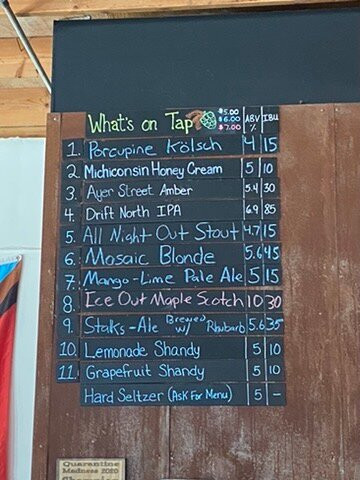 What's on Tap $5.00 $6.00 $7.00 ABV % IBU
1. Porcupine Kölsch 4 15
2. Michiconsin Honey Cream 5 10
3. Ayer Street Amber 5.4 30
4. Drift North IPA 6.9 85
5. All Night Out Stout 4.7 15
6. Mosaic Blonde 5.6 45
7. Mango-Lime Pale Ale 5 15
8. Ice Out Maple Scotch 10 30
9. Stalks-Ale Brewed w/ Rhubarb 5.6 35
10. Lemonade Shandy 5 10
11. Grapefruit Shandy 5 10
Hard Seltzer (Ask For Menu) 5 -
Quarantine
Madness 2020